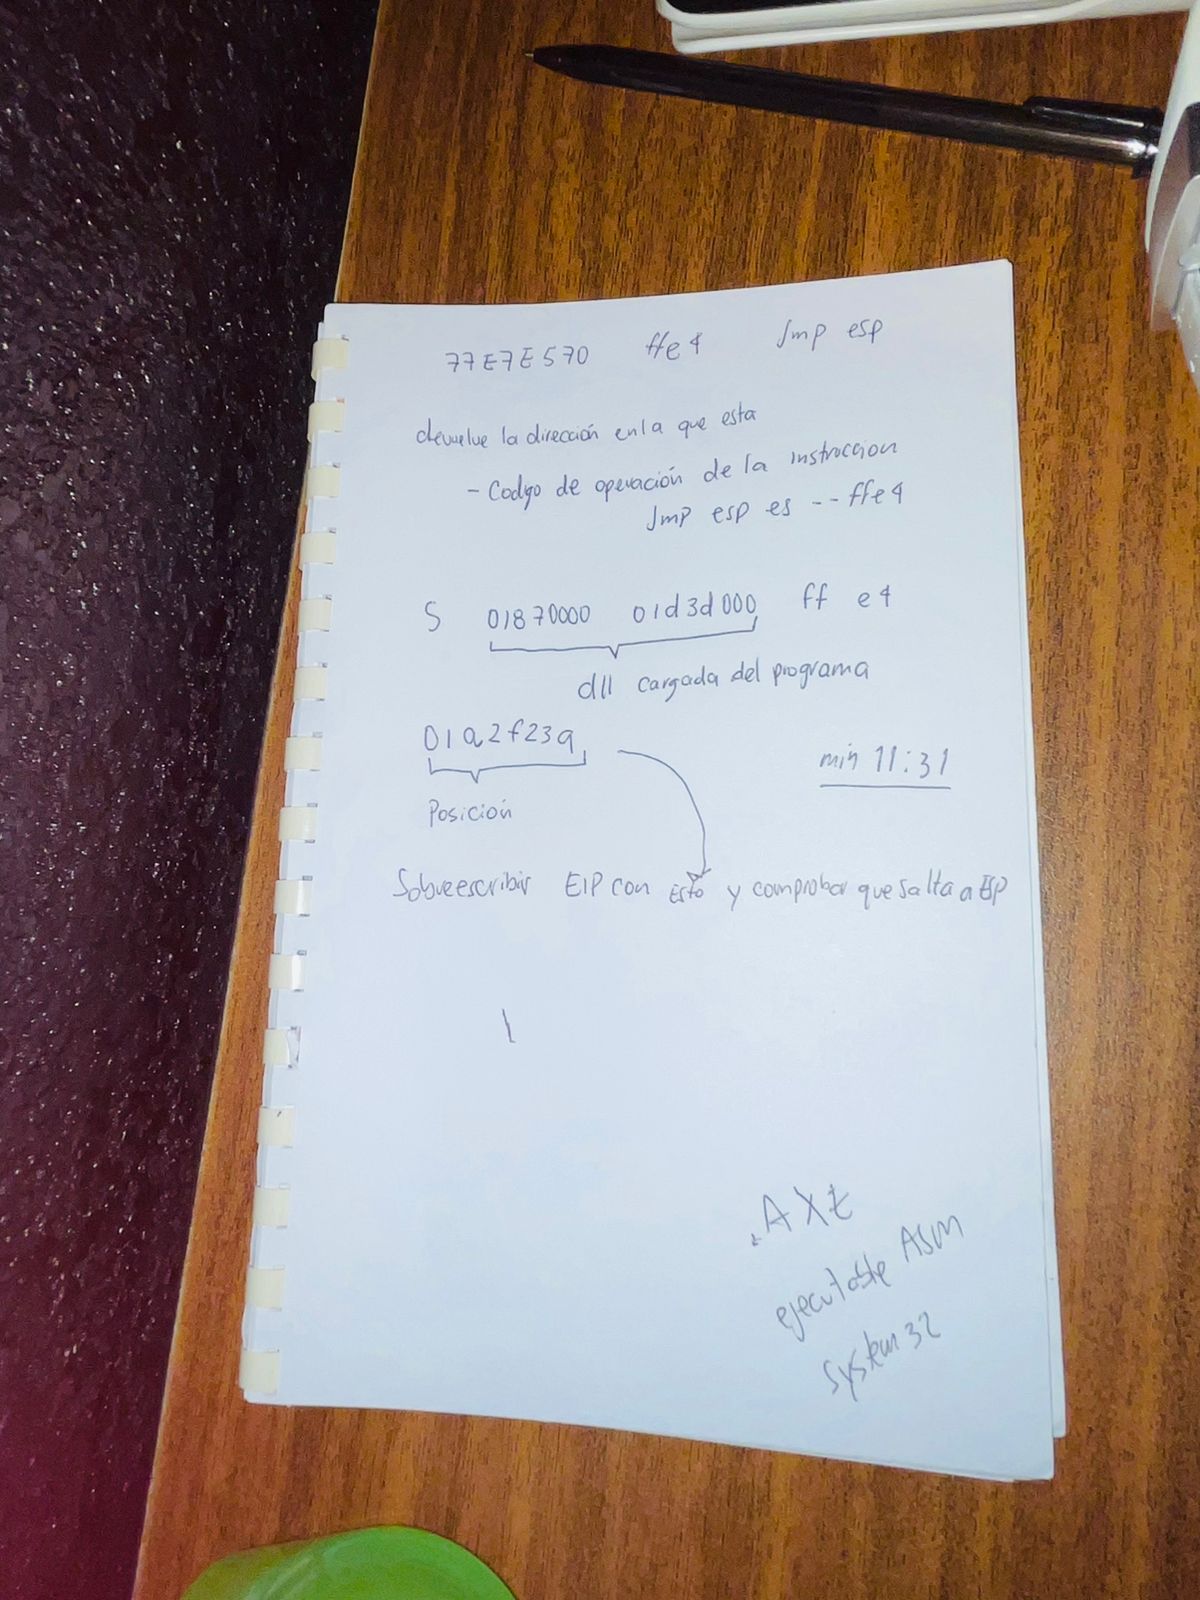 77E7E570 ffe4 Jmp esp
devuelve la dirección en la que esta
- Codgo de operación de la instruccion
Jmp esp es -- ffe4
S 01870000 01d3d000 ff e4
dll cargada del programa
01a2f23a
min 11:31
Posición
Sobreescribir EIP con Esto y comprobar que salta a ESP
ejecutable ASM
System32